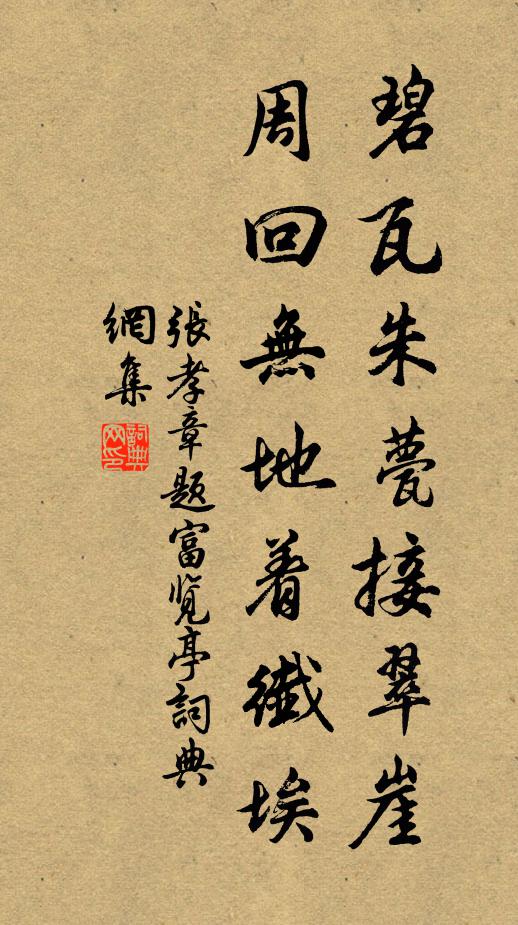 碧瓦朱甍接翠崖
周回無地着纖埃
張孝章題富覽亭詞典
網集
詞典
網印